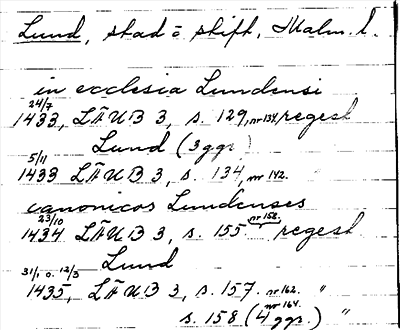 Lund, stad o skift, Malm. l.
in ecclesia Lundensi
24/7
1433, LÄUB 3, s. 129, nr 134, regest
Lund (3 ggr)
5/11
1433 LÄUB 3, s. 134, nr 142. "
canonicos Lundenses
23/10
1434 LÄUB 3, s. 155 nr 158, regest
Lund
31/1 o. 12/3
1435, LÄUB 3, s. 157. nr 162. "
s. 158 (4 ggr.) nr 164. "